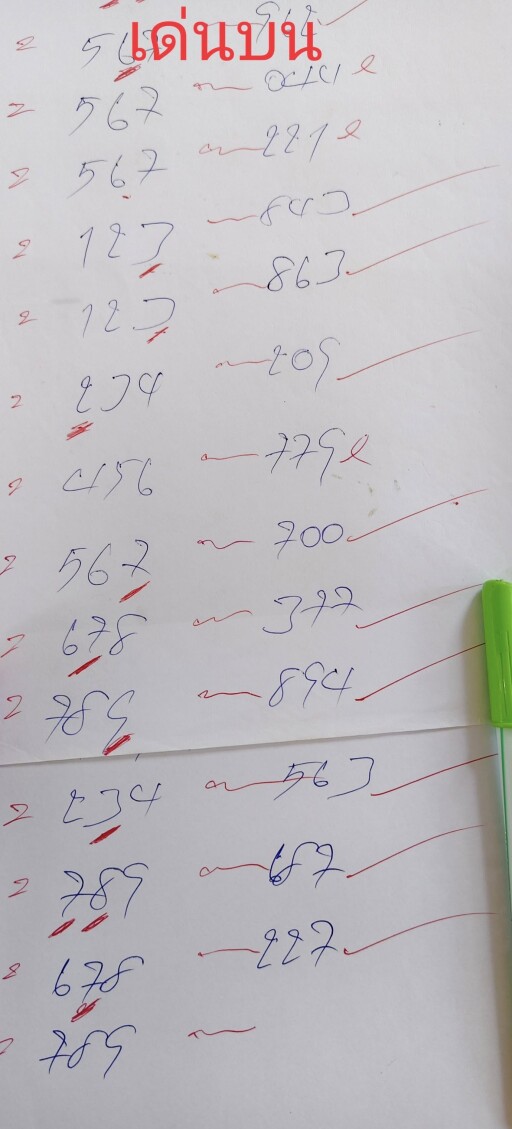 เด่นบน
567
567 044
567 221
123 843
123 863
234 209
456 779
567 700
678 377
789 894
234 563
789 687
678 227
789